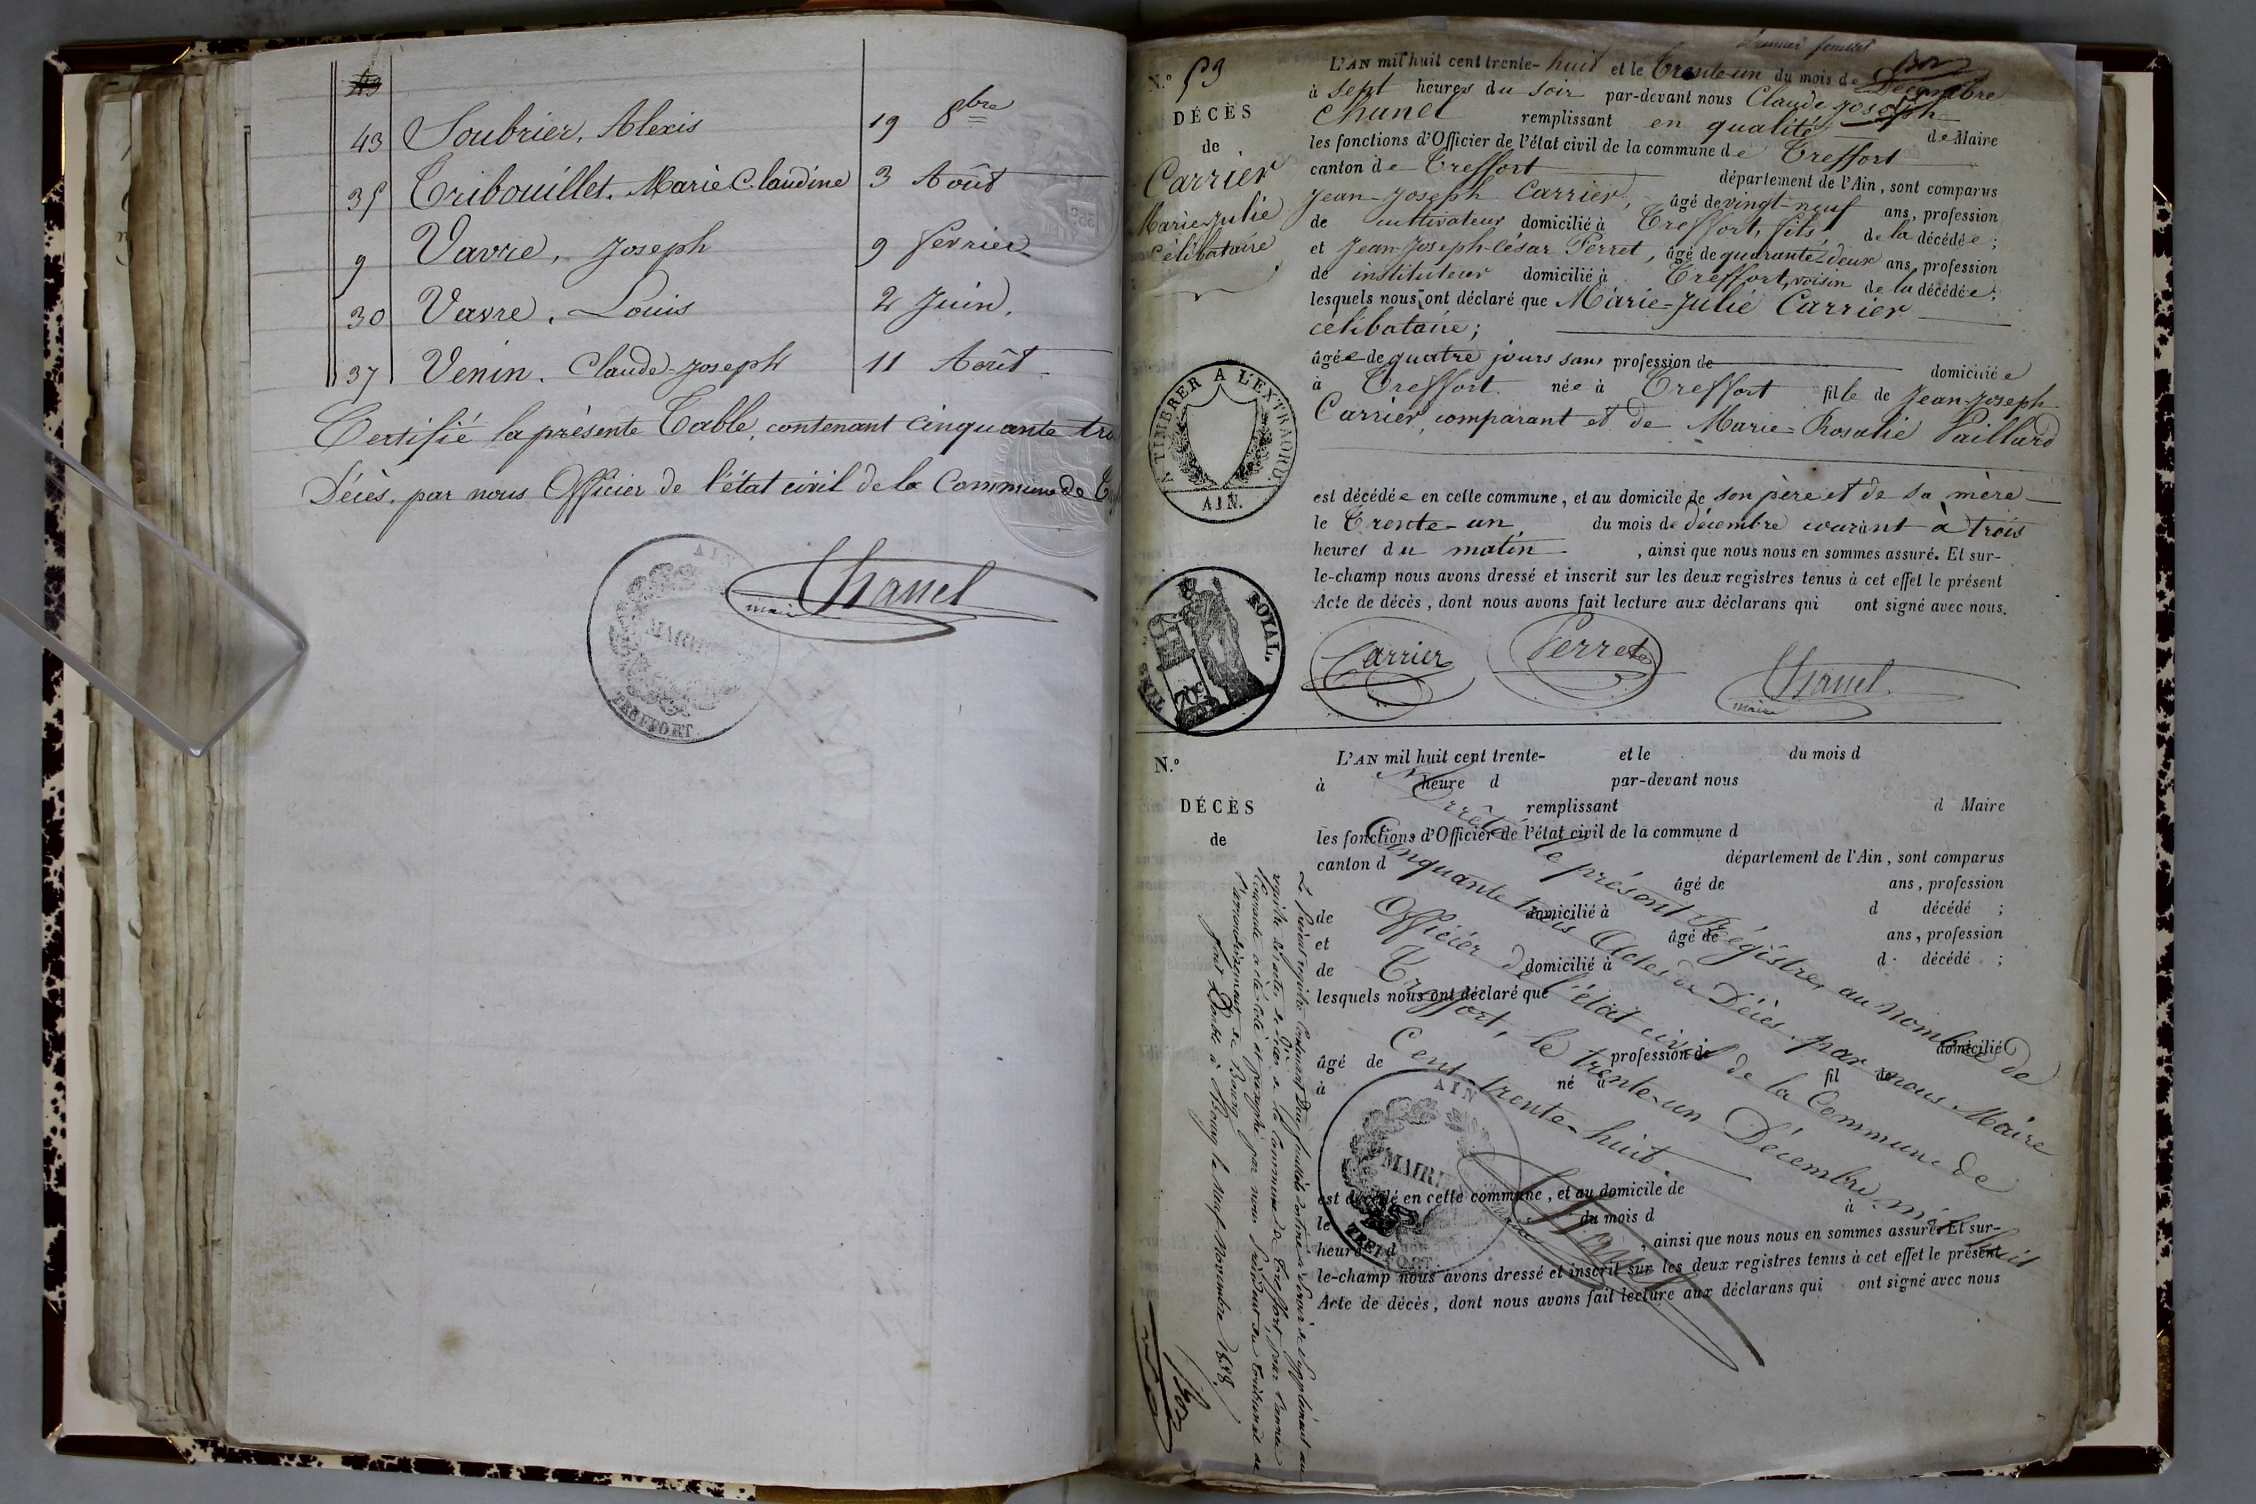 43
43 Soubrier, Alexis 19 8bre
35 Tribouillet. Marie Claudine 3 Août
9 Vavre, Joseph 9 fevrier
30 Vavre, Louis 2 Juin.
37 Venin. Claude-Joseph 11 Août
Certifié la présente Table, contenant cinquante tro
Décès, par nous Officier de l'état civil de la Commune de
Chanel
maire
AIN
MAIRIE
TREFFORT
Premier feuillet
N.º 53
DÉCÈS
de
Carrier
Marie-Julie
Célibataire
L'AN mil huit cent trente-huit et le trente un du mois de Décembre
à sept heures du soir par-devant nous Claude Joseph
Chanel remplissant en qualité de Maire
les fonctions d'Officier de l'état civil de la commune de Treffort
canton de Treffort département de l'Ain, sont comparus
Jean-Joseph Carrier, âgé de vingt-neuf ans, profession
de cultivateur domicilié à Treffort, fils de la décédée;
et Jean-Joseph-César Perret, âgé de quarante-deux ans, profession
de instituteur domicilié à Treffort, voisin de la décédée;
lesquels nous ont déclaré que Marie-Julie Carrier
célibataire;
âgée de quatre jours sans profession de domiciliée
à Treffort née à Treffort fille de Jean-Joseph
Carrier, comparant et de Marie-Rosalie Paillard
est décédée en cette commune, et au domicile de son père et de sa mère
le Trente-un du mois de décembre courant à trois
heures du matin, ainsi que nous nous en sommes assuré. Et sur-
le-champ nous avons dressé et inscrit sur les deux registres tenus à cet effet le présent
Acte de décès, dont nous avons fait lecture aux déclarans qui ont signé avec nous.
A TIMBRER A L'EXTRAORD.
AIN.
TIMB. ROYAL.
70c
Carrier Perret Chanel
maire
N.º
DÉCÈS
de
L'AN mil huit cent trente- et le du mois d
à heure d par-devant nous
remplissant d Maire
les fonctions d'Officier de l'état civil de la commune d
canton d département de l'Ain, sont comparus
âgé de ans, profession
de domicilié à d décédé ;
et âgé de ans, profession
de domicilié à d décédé ;
lesquels nous ont déclaré que
âgé de profession de domicilié
à né à fil de
est décédé en cette commune, et au domicile de
le du mois d à
heure d , ainsi que nous nous en sommes assuré. Et sur-
le-champ nous avons dressé et inscrit sur les deux registres tenus à cet effet le présent
Acte de décès, dont nous avons fait lecture aux déclarans qui ont signé avec nous
Arrêté le présent Régistre, au nombre de
Cinquante trois Actes de Décès, par nous Maire
Officier de l'état civil de la Commune de
Treffort, le trente-un Décembre mil huit
Cent trente-huit.
Chanel
maire
AIN
MAIRIE
TREFFORT
Le présent registre contenant deux feuillets destiné à servir de supplément au
registre des actes de décès de la Commune de Treffort, pour l'année
courante a été coté et paraphé par nous Président du tribunal de
l'arrondissement de Bourg
fait double à Bourg le Neuf Novembre 1838